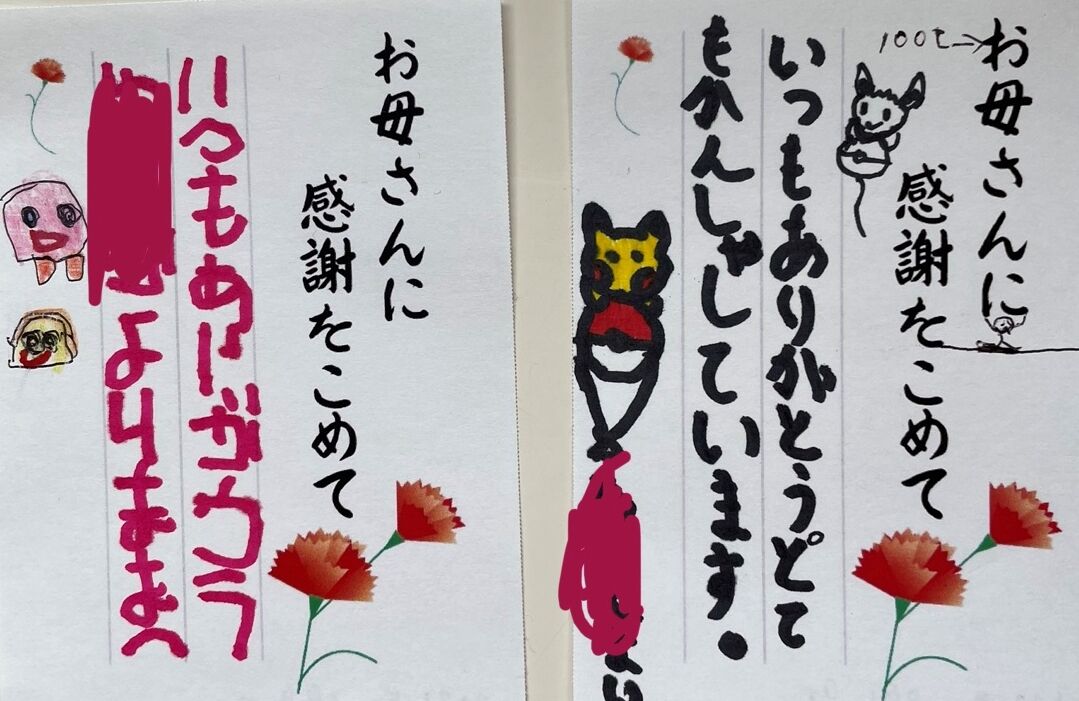 お母さんに
感謝をこめて
いつもありがとう
よりままへ
100t→
お母さんに
感謝をこめて
いつもありがとう。とて
もかんしゃしています。
より